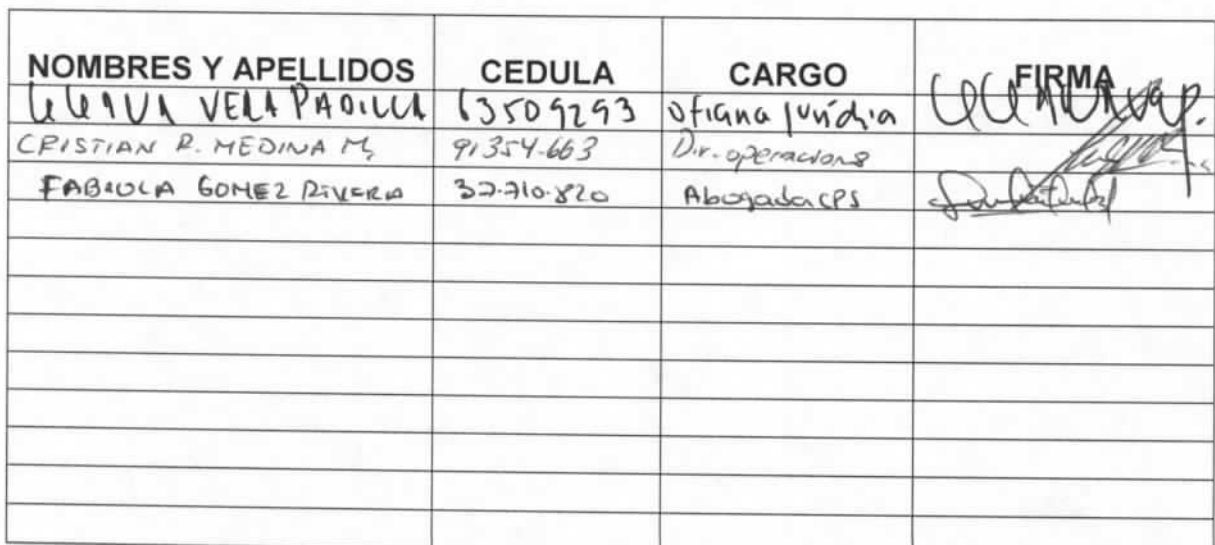 NOMBRES Y APELLIDOS CEDULA CARGO FIRMA
VERA PADILLA 63509293 oficina jurídica
CRISTIAN R. MEDINA M. 91354-663 Dir. operaciones
FABIOLA GOMEZ RIVERA 37.710.820 Abogada CPS